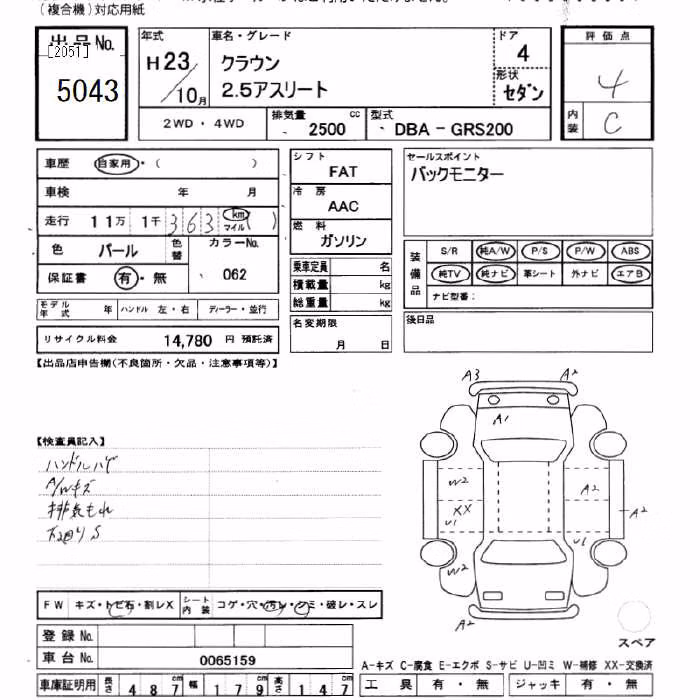 (複合機)対応用紙
出品No.
[2051]
5043
年式
H23/10月
車名・グレード
クラウン
2.5アスリート
ドア
4
形状
セダン
評価点
4
内装
C
2WD・4WD
排気量 2500 cc
型式 DBA-GRS200
車歴 自家用・( )
車検 年 月
走行 11万 1千 363 km マイル ( )
色 パール 色替 カラーNo. 062
保証書 有・無
モデル年式 年 ハンドル 左・右 ディーラー・並行
リサイクル料金 14,780 円 預託済
シフト
FAT
冷房
AAC
燃料
ガソリン
乗車定員 名
積載量 kg
総重量 kg
名変期限
月 日
セールスポイント
バックモニター
装備品
S/R 純A/W P/S P/W ABS
純TV 純ナビ 革シート 外ナビ エアB
ナビ型番:
後日品
【出品店申告欄(不良箇所・欠品・注意事項等)】
【検査員記入】
ハンドルハゲ
A/Wキズ
排気もれ
下廻りS
A3 A2
A1
W2
A2
XX
U1
A2
U1
W2
A2
スペア
FW キズ・トビ石・割レX シート内装 コゲ・穴・汚レ・シミ・破レ・スレ
登録No.
車台No. 0065159
車庫証明用 長さ 487cm 幅 179cm 高さ 147cm
A-キズ C-腐食 E-エクボ S-サビ U-凹ミ W-補修 XX-交換済
工具 有・無 ジャッキ 有・無